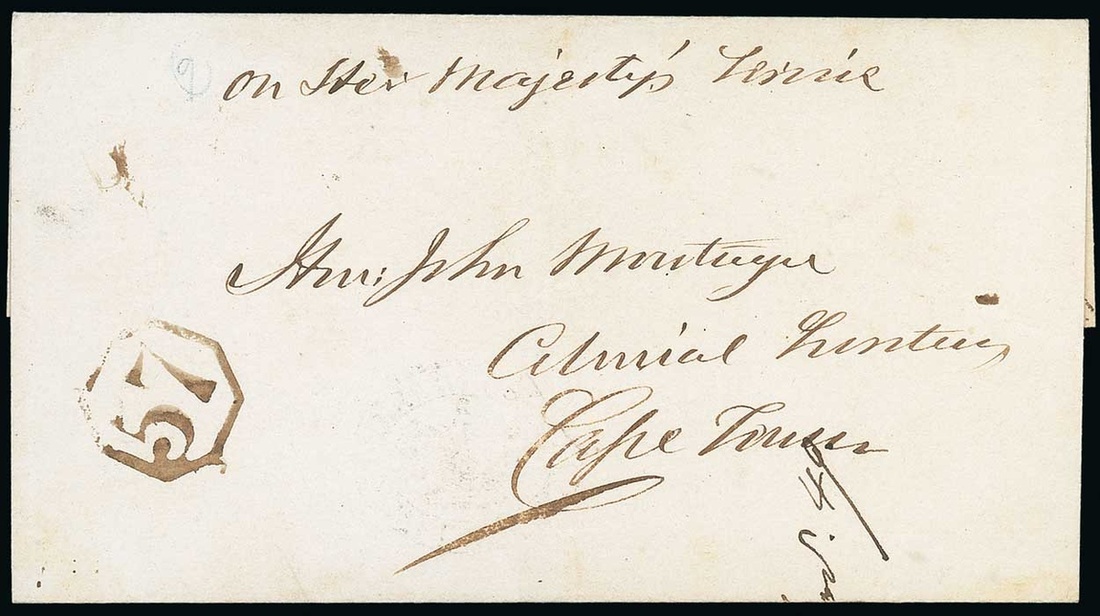 On Her Majesty's Service
Hon: John Montague
Colonial Secretary
Cape Town
57